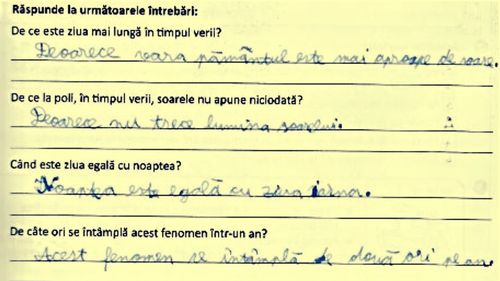 Răspunde la următoarele întrebări:
De ce este ziua mai lungă în timpul verii?
Deoarece vara pământul este mai aproape de soare.
De ce la poli, în timpul verii, soarele nu apune niciodată?
Deoarece nu trece lumina soarelui.
Când este ziua egală cu noaptea?
Noaptea este egală cu ziua iarna.
De câte ori se întâmplă acest fenomen într-un an?
Acest fenomen se întâmplă de două ori pe an.